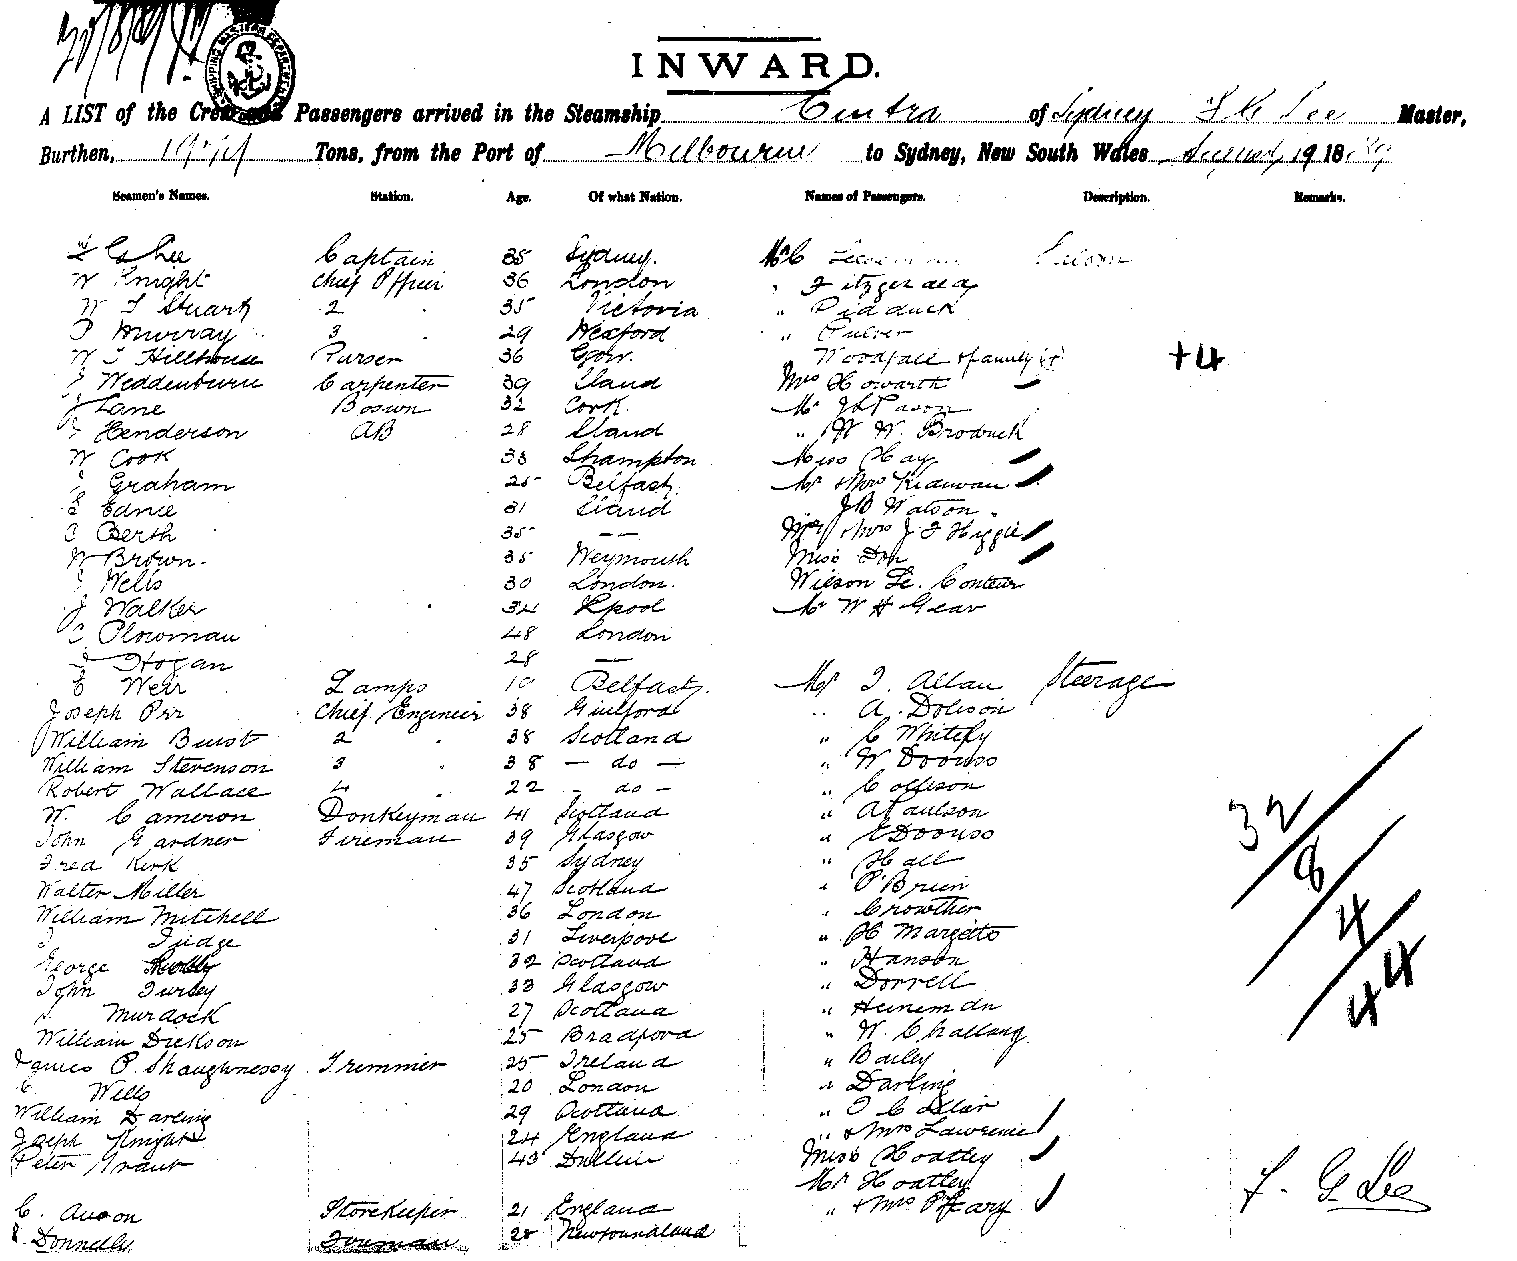 INWARD.
A LIST of the Crew and Passengers arrived in the Steamship Cintra of Sydney F G Lee Master,
Burthen, Tons, from the Port of Melbourne to Sydney, New South Wales August 19 18
Seamen's Names. Station. Age. Of what Nation. Names of Passengers. Description. Remarks.
F G Lee Captain 38 Sydney. Mr C Saloon
W Knight Chief Officer 36 London " Fitzgerald
W F Stuart 2 " 35 Victoria " Pidduck
Murray 3 " 29 Wexford " Culver
W J Hillhouse Purser 36 Woodfall & family (4) +4
Weddenburne Carpenter 39 Sland Mrs Howarth
J Lane Boswn 32 Cork. Mr Pason
J Henderson AB 28 Sland " W W. Brodwick
W Cook 33 Shampton Miss Hay
Graham 25 Belfast. Mr & Mrs
E Ednie 31 Sland J B Watson
C Berth 35 — — Mr & Mrs J F Higgie
W Brown. 35 Weymouth Miss Don
Wells 30 London. Wilson Le. Conteur
J Walker 34 Lpool Mr W H Gear
C Plowman 48 London
J Hogan 28 —
Weir Lamps 19 Belfast. Mr J. Allan Steerage
Joseph Orr Chief Engineer 38 Guilford " A. Dobson
William Burst 2 " 38 Scotland " C Whitefy
William Stevenson 3 " 38 — do — " W Doouss
Robert Wallace 4 " 22 — do — " Collison
W. Cameron Donkeyman 41 Scotland " A Paulson
John Gardner Fireman 39 Glasgow " E Doouss
Fred Kirk 35 Sydney " Hall
Walter Miller 47 Scotland " O'Brien
William Mitchell 36 London " Crowther
J Judge 31 Liverpool " H Margetts
George 32 Scotland " Hanson
John Turley 33 Glasgow " Dorrell
Murdock 27 Scotland " Heineman
William Dickson 25 Bradford " W. Challang
James O. Shaughnessy Trimmer 25 Ireland " Baily
C Wells 20 London " Darling
William Darling 29 Scotland "
Joseph Knight 24 England " & Mrs Lawrence
Peter Grant 43 Dublin Miss Hoatley
Mr Hoatley
C. Auson Storekeeper 21 England " & Mrs
E. Donnelly Fireman 28 Newfoundland
32
8
4
44
F. G Lee